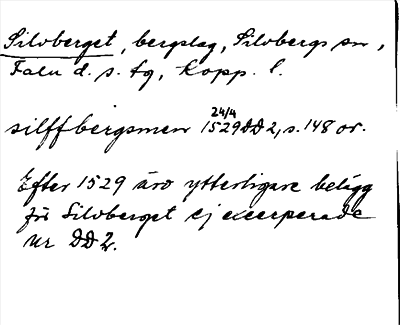 Silvberget, bergslag, Silvbergs sn,
Falu d. s. fg, Kopp. l.
24/4
silffbergsmen 1529 DD 2, s. 148 or.
Efter 1529 äro ytterligare belägg
för Silvberget ej excerperade
ur DD 2.